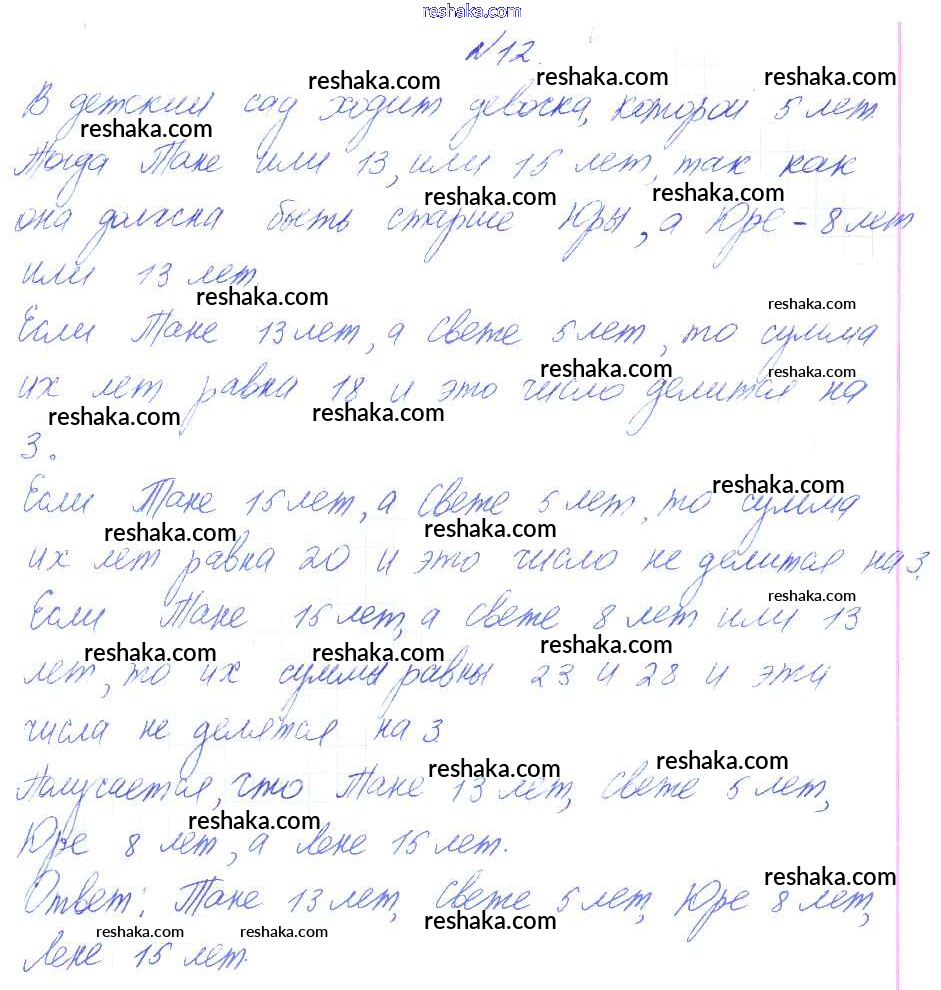 reshaka.com
№12.
reshaka.com reshaka.com reshaka.com
В детский сад ходит девочка, которой 5 лет.
reshaka.com
Тогда Тане или 13, или 15 лет, так как
reshaka.com reshaka.com
она должна быть старше Юры, а Юре – 8 лет
или 13 лет.
reshaka.com reshaka.com
Если Тане 13 лет, а Свете 5 лет, то сумма
reshaka.com reshaka.com
их лет равна 18 и это число делится на
reshaka.com reshaka.com
3.
reshaka.com
Если Тане 15 лет, а Свете 5 лет, то сумма
reshaka.com reshaka.com
их лет равна 20 и это число не делится на 3.
reshaka.com
Если Тане 15 лет, а Свете 8 лет или 13
reshaka.com reshaka.com reshaka.com
лет, то их суммы равны 23 и 28 и эти
числа не делятся на 3.
reshaka.com reshaka.com
Получается, что Тане 13 лет, Свете 5 лет,
reshaka.com
Юре 8 лет, а Лене 15 лет.
reshaka.com
Ответ: Тане 13 лет, Свете 5 лет, Юре 8 лет,
reshaka.com reshaka.com reshaka.com
Лене 15 лет.